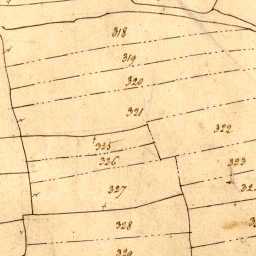 318
319
320
321
322
325
326
323
327
328